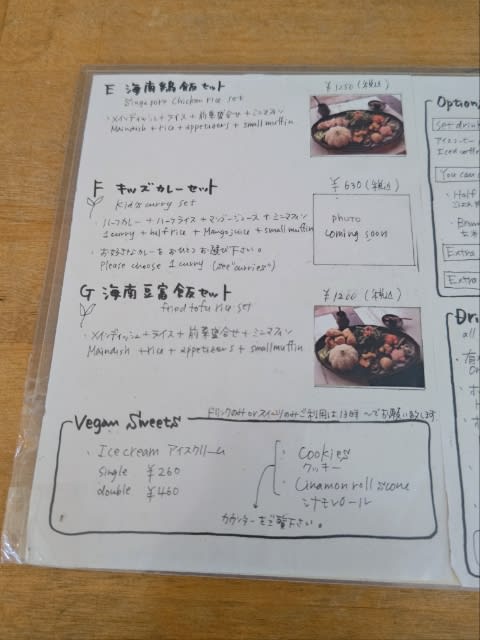 E 海南鶏飯セット ¥1250(税込)
Singapore Chicken rice set
・メインディッシュ+ライス+前菜盛合せ+ミニマフィン
Maindish+rice+appetizers+small muffin
F キッズカレーセット ¥630(税込)
kid's curry set
・ハーフカレー+ハーフライス+マンゴージュース+ミニマフィン
1 curry+half rice+Mango juice+small muffin
・お好きなカレーをおひとつお選び下さい。
Please choose 1 curry (see "curries")
photo
coming soon
G 海南豆富飯セット ¥1200(税込)
fried tofu rice set
・メインディッシュ+ライス+前菜盛合せ+ミニマフィン
Maindish+rice+appetizers+small muffin
Vegan Sweets
ドリンクのみorスイーツのみご利用は13時〜でお願い致します
・Ice cream アイスクリーム
single ¥260
double ¥460
・Cookies
クッキー
・Cinamon roll scone
シナモンロール
カウンターをご覧下さい。
Option
set drin
アイスコーヒー
Iced coffe
You can
・Half
Extra
Extra
Dri
all
・有